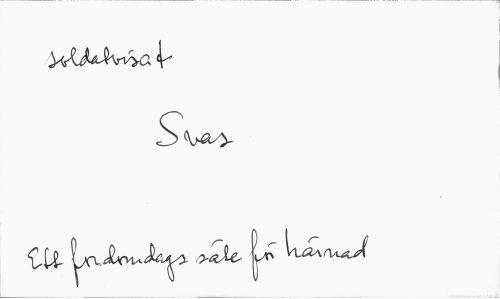 soldatvisa t
Svas
Ett fordomdags säte för härnad